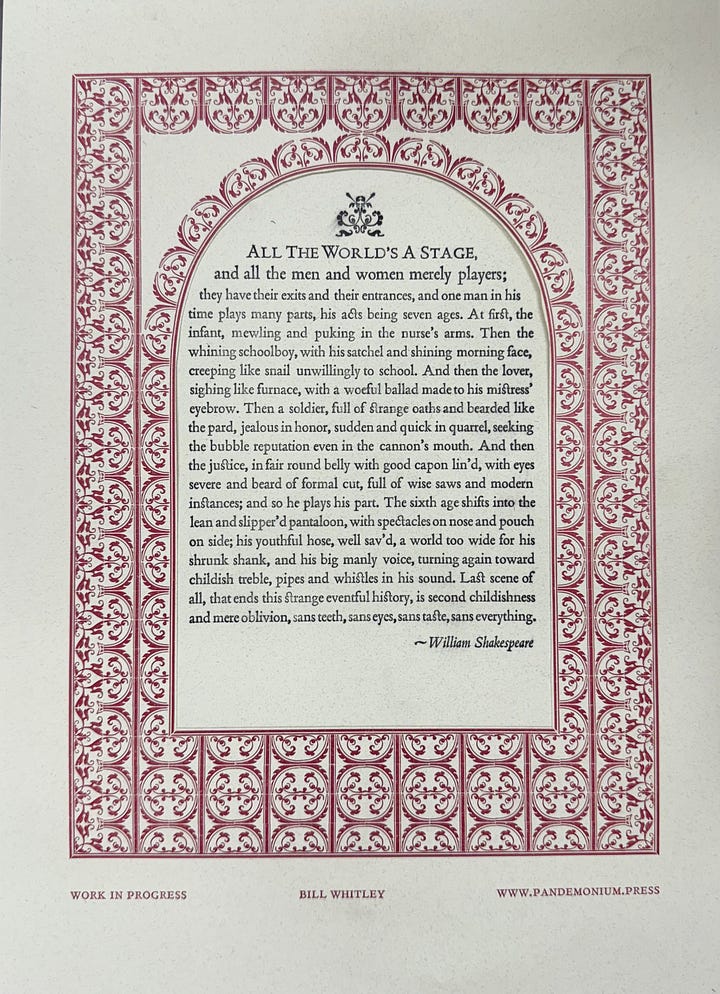 ALL THE WORLD'S A STAGE,
and all the men and women merely players;
they have their exits and their entrances, and one man in his
time plays many parts, his acts being seven ages. At first, the
infant, mewling and puking in the nurse's arms. Then the
whining schoolboy, with his satchel and shining morning face,
creeping like snail unwillingly to school. And then the lover,
sighing like furnace, with a woeful ballad made to his mistress'
eyebrow. Then a soldier, full of strange oaths and bearded like
the pard, jealous in honor, sudden and quick in quarrel, seeking
the bubble reputation even in the cannon's mouth. And then
the justice, in fair round belly with good capon lin'd, with eyes
severe and beard of formal cut, full of wise saws and modern
instances; and so he plays his part. The sixth age shifts into the
lean and slipper'd pantaloon, with spectacles on nose and pouch
on side; his youthful hose, well sav'd, a world too wide for his
shrunk shank, and his big manly voice, turning again toward
childish treble, pipes and whistles in his sound. Last scene of
all, that ends this strange eventful history, is second childishness
and mere oblivion, sans teeth, sans eyes, sans taste, sans everything.
~ William Shakespeare
WORK IN PROGRESS
BILL WHITLEY
WWW.PANDEMONIUM.PRESS